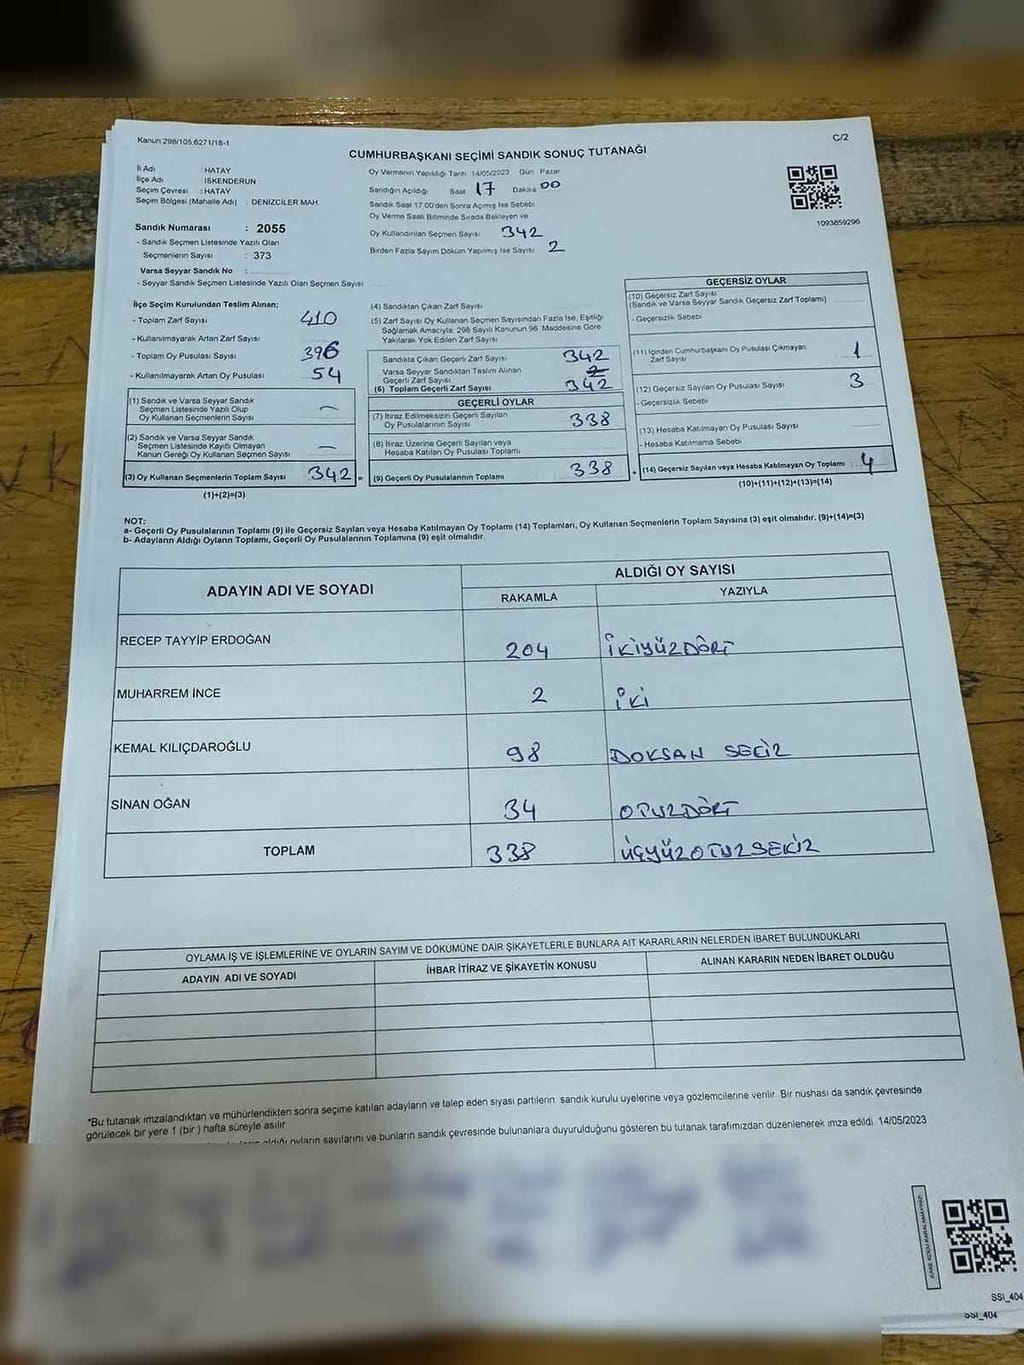 Kanun:298/105,6271/18-1
C/2
CUMHURBAŞKANI SEÇİMİ SANDIK SONUÇ TUTANAĞI
İli Adı : HATAY
İlçe Adı : İSKENDERUN
Seçim Çevresi : HATAY
Seçim Bölgesi (Mahalle Adı) : DENİZCİLER MAH.
Sandık Numarası : 2055
- Sandık Seçmen Listesinde Yazılı Olan
Seçmenlerin Sayısı : 373
Varsa Seyyar Sandık No :
- Seyyar Sandık Seçmen Listesinde Yazılı Olan Seçmen Sayısı
Oy Vermenin Yapıldığı Tarih 14/05/2023 Gün Pazar
Sandığın Açıldığı Saat 17 Dakika 00
Sandık Saat 17:00'den Sonra Açılmış İse Sebebi
Oy Verme Saati Bitiminde Sırada Bekleyen ve
Oy Kullandırılan Seçmen Sayısı 342
Birden Fazla Sayım Döküm Yapılmış İse Sayısı 2
1093859296
İlçe Seçim Kurulundan Teslim Alınan;
- Toplam Zarf Sayısı 410
- Kullanılmayarak Artan Zarf Sayısı
- Toplam Oy Pusulası Sayısı 396
- Kullanılmayarak Artan Oy Pusulası 54
(1) Sandık ve Varsa Seyyar Sandık
Seçmen Listesinde Yazılı Olup
Oy Kullanan Seçmenlerin Sayısı –
(2) Sandık ve Varsa Seyyar Sandık
Seçmen Listesinde Kayıtlı Olmayan
Kanun Gereği Oy Kullanan Seçmen Sayısı –
(3) Oy Kullanan Seçmenlerin Toplam Sayısı 342
(1)+(2)=(3)
(4) Sandıktan Çıkan Zarf Sayısı
(5) Zarf Sayısı Oy Kullanan Seçmen Sayısından Fazla İse, Eşitliği
Sağlamak Amacıyla; 298 Sayılı Kanunun 98. Maddesine Göre
Yakılarak Yok Edilen Zarf Sayısı
Sandıkta Çıkan Geçerli Zarf Sayısı 342
Varsa Seyyar Sandıktan Teslim Alınan
Geçerli Zarf Sayısı
(6) Toplam Geçerli Zarf Sayısı 342
GEÇERLİ OYLAR
(7) İtiraz Edilmeksizin Geçerli Sayılan
Oy Pusulalarının Sayısı 338
(8) İtiraz Üzerine Geçerli Sayılan veya
Hesaba Katılan Oy Pusulası Toplamı
(9) Geçerli Oy Pusulalarının Toplamı 338
GEÇERSİZ OYLAR
(10) Geçersiz Zarf Sayısı
(Sandık ve Varsa Seyyar Sandık Geçersiz Zarf Toplamı)
- Geçersizlik Sebebi
(11) İçinden Cumhurbaşkanı Oy Pusulası Çıkmayan
Zarf Sayısı 1
(12) Geçersiz Sayılan Oy Pusulası Sayısı 3
- Geçersizlik Sebebi
(13) Hesaba Katılmayan Oy Pusulası Sayısı
- Hesaba Katılmama Sebebi
(14) Geçersiz Sayılan veya Hesaba Katılmayan Oy Toplamı : 4
(10)+(11)+(12)+(13)=(14)
NOT:
a- Geçerli Oy Pusulalarının Toplamı (9) ile Geçersiz Sayılan veya Hesaba Katılmayan Oy Toplamı (14) Toplamları, Oy Kullanan Seçmenlerin Toplam Sayısına (3) eşit olmalıdır. (9)+(14)=(3)
b- Adayların Aldığı Oyların Toplamı, Geçerli Oy Pusulalarının Toplamına (9) eşit olmalıdır.
ADAYIN ADI VE SOYADI
ALDIĞI OY SAYISI
RAKAMLA YAZIYLA
RECEP TAYYİP ERDOĞAN 204 İKİYÜZDÖRT
MUHARREM İNCE 2 İKİ
KEMAL KILIÇDAROĞLU 98 DOKSAN SECİZ
SİNAN OĞAN 34 OTUZDÖRT
TOPLAM 338 ÜÇYÜZOTUZSEKİZ
OYLAMA İŞ VE İŞLEMLERİNE VE OYLARIN SAYIM VE DÖKÜMÜNE DAİR ŞİKAYETLERLE BUNLARA AİT KARARLARIN NELERDEN İBARET BULUNDUKLARI
ADAYIN ADI VE SOYADI İHBAR İTİRAZ VE ŞİKAYETİN KONUSU ALINAN KARARIN NEDEN İBARET OLDUĞU
*Bu tutanak imzalandıktan ve mühürlendikten sonra seçime katılan adayların ve talep eden siyasi partilerin sandık kurulu üyelerine veya gözlemcilerine verilir. Bir nüshası da sandık çevresinde
görülecek bir yere 1 (bir ) hafta süreyle asılır.
aldığı oyların sayılarını ve bunların sandık çevresinde bulunanlara duyurulduğunu gösteren bu tutanak tarafımızdan düzenlenerek imza edildi. 14/05/2023
KARE KODU KARALAMAYINIZ!
SSI_404
SSI_404